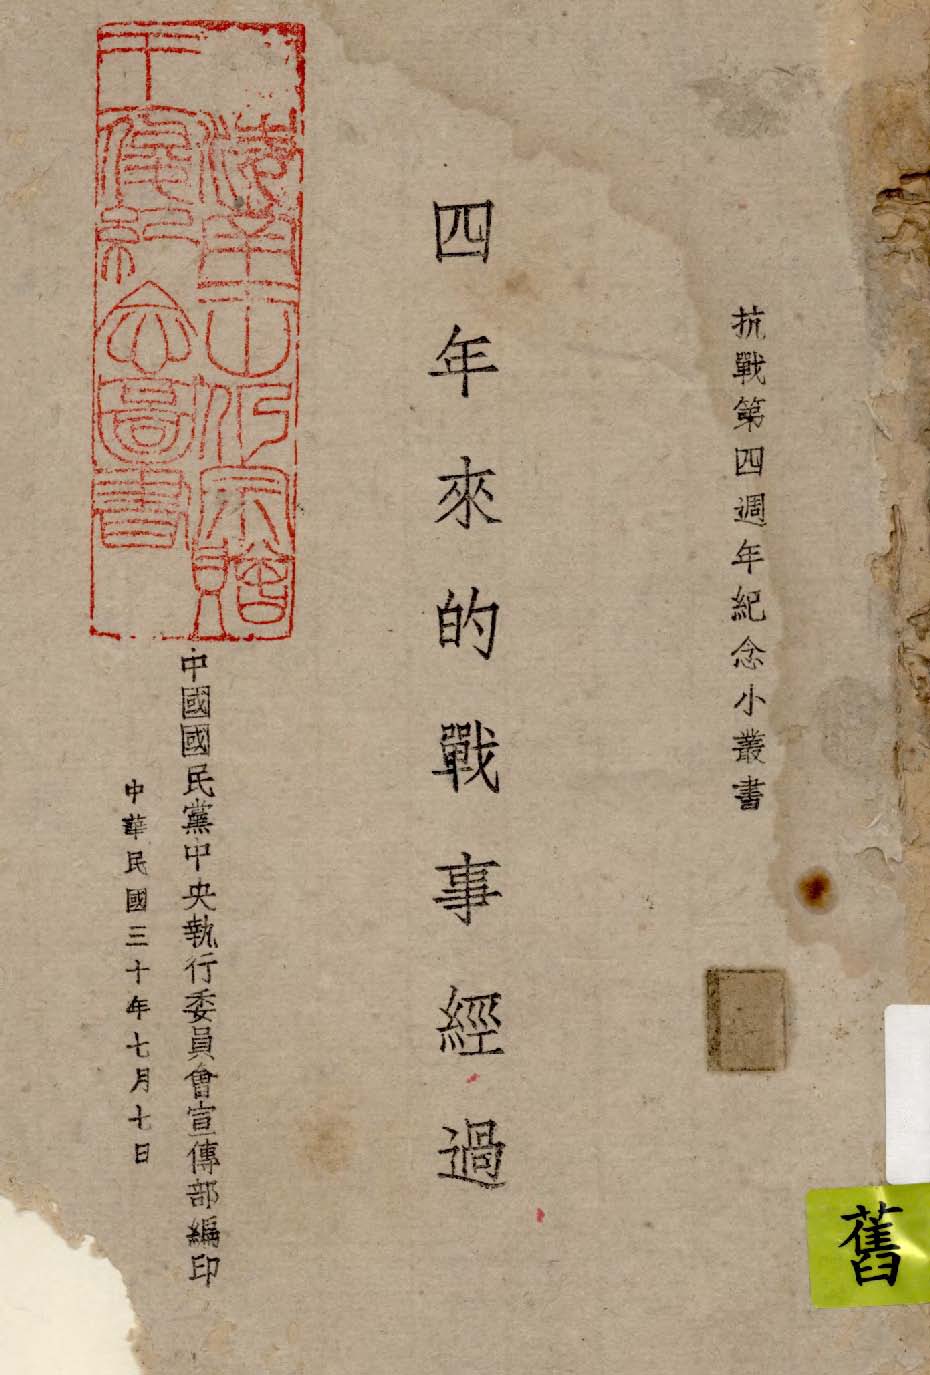 抗戰第四週年紀念小叢書
四年來的戰事經過
紀念圖書
中國國民黨中央執行委員會宣傳部編印
中華民國三十年七月七日
舊